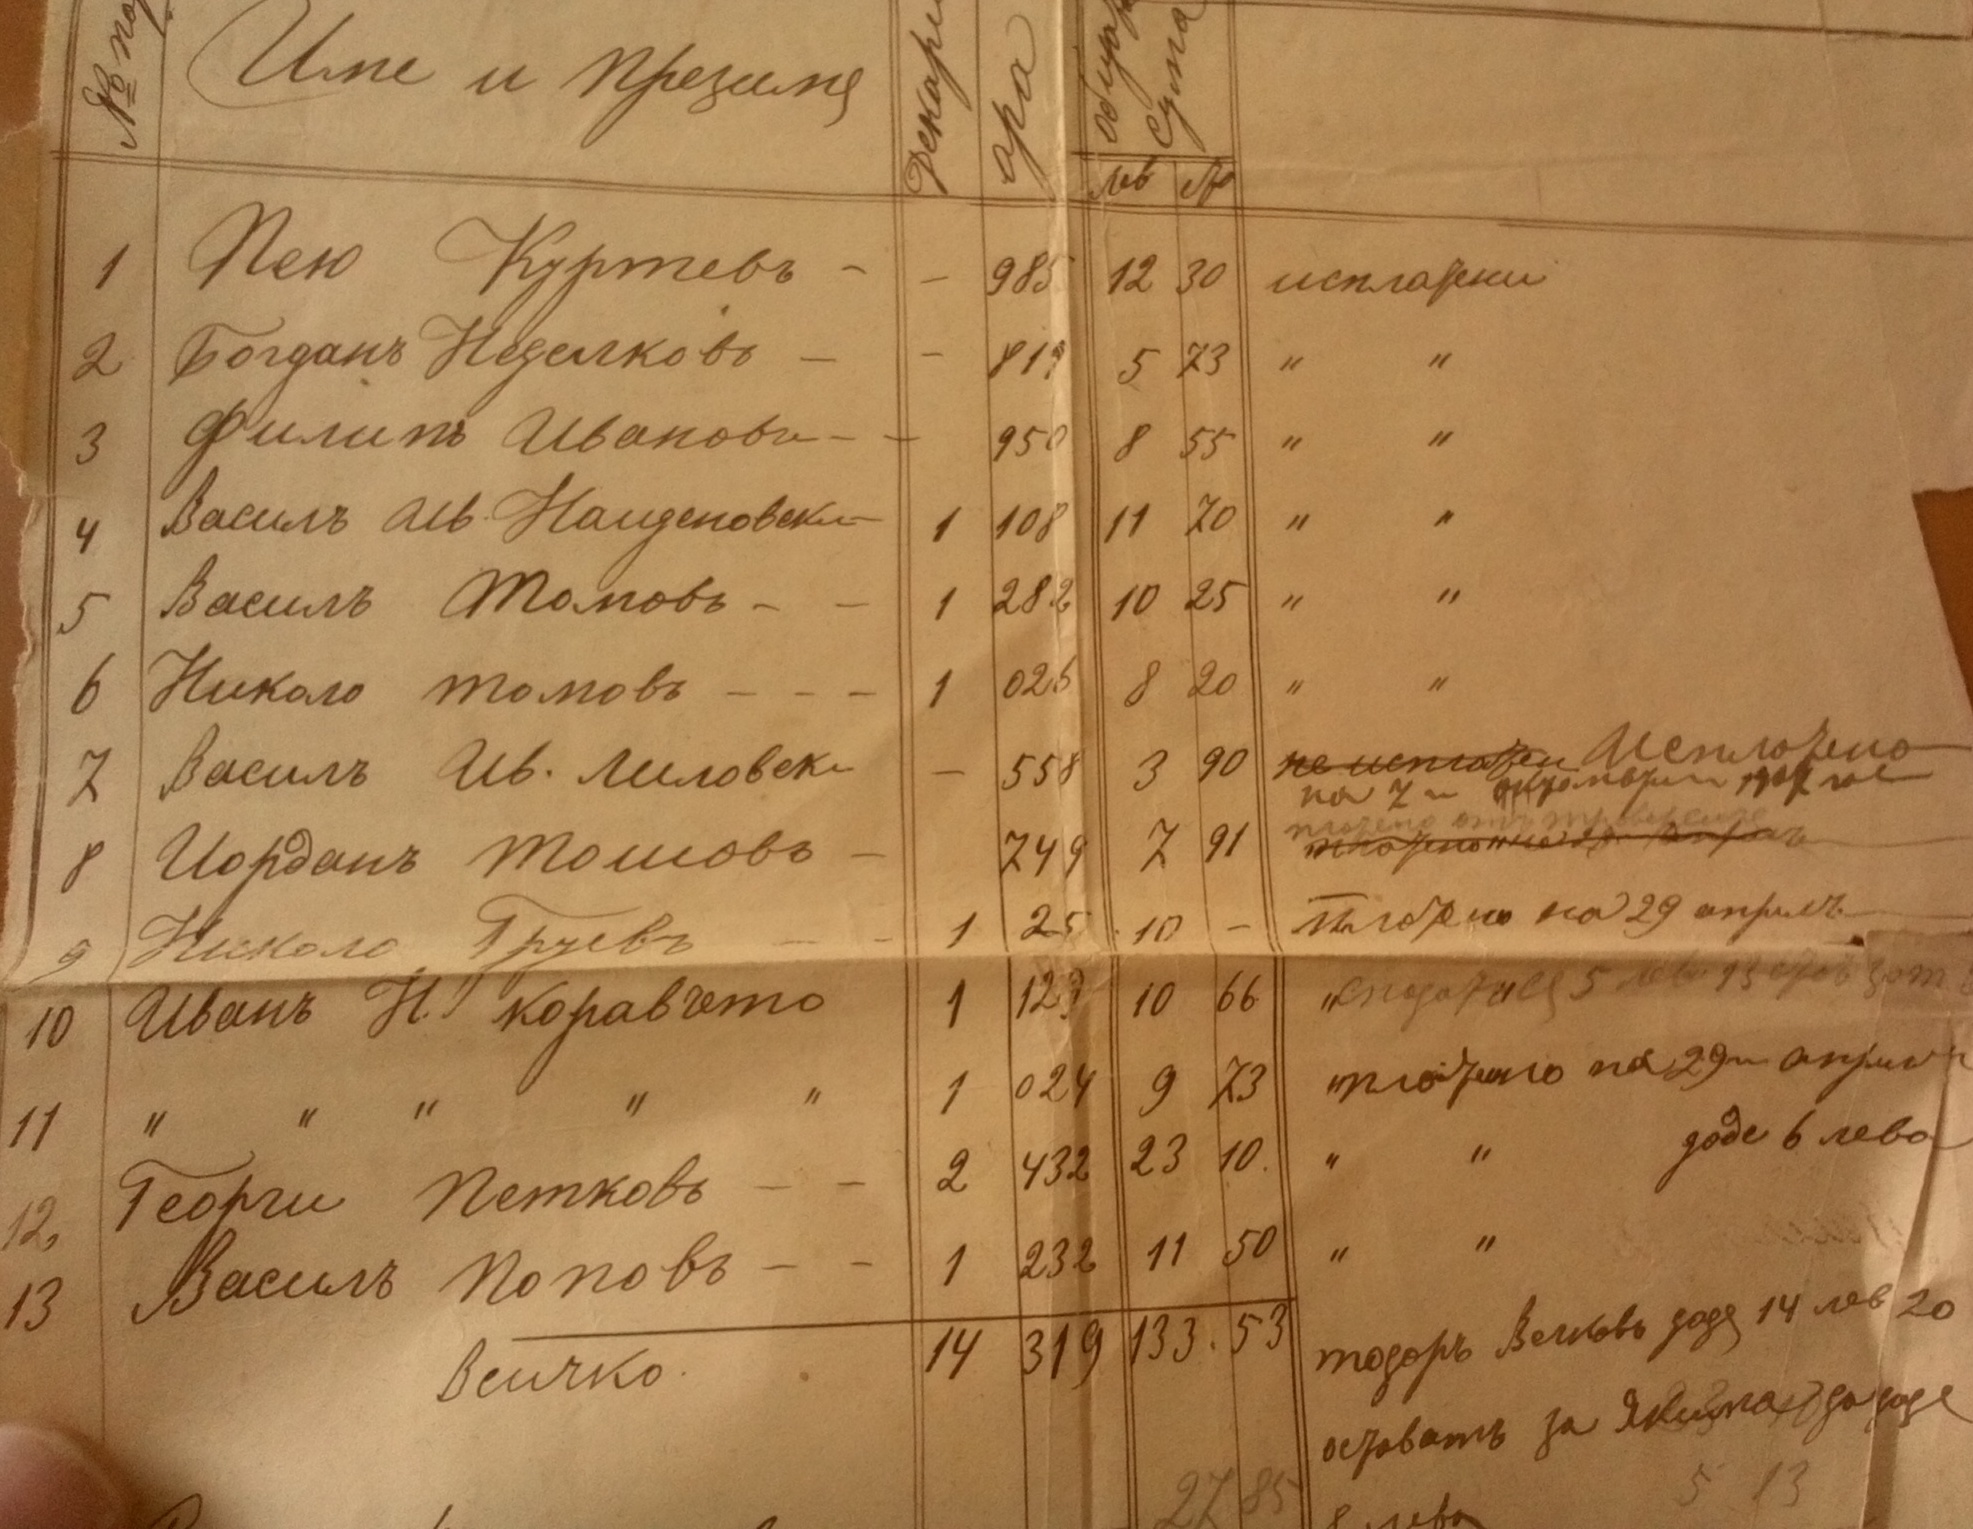 № по Име и Презиме Декари ара обща сума
лв ст
1 Пею Куртевъ - - 985 12 30 исплатени
2 Богданъ Неделковъ - - 819 5 73 " "
3 Филипъ Ивановъ - - 950 8 55 " "
4 Василъ Ив. Найденовски 1 108 11 70 " "
5 Василъ Томовъ - - 1 282 10 25 " "
6 Николо Томовъ - - - 1 026 8 20 " "
7 Василъ Ив. Лиловски - 558 3 90 не исплатен Исплатено
на 7 и октомври 1907 год
8 Иорданъ Тошовъ - 749 7 91 платено
9 Николо Груевъ - - 1 25 10 - платено на 29 априлъ
10 Иванъ Н. Коравчето 1 129 10 66 " 5 лев. 13
11 " " " " " 1 024 9 73 " платено на 29 и априлъ
12, Георги Петковъ - - 2 432 23 10. " " даде 6 лева
13 Василъ Поповъ - - 1 232 11 50 " "
Всичко. 14 319 133.53 тодоръ Велковъ даде 14 лев 20
оставатъ за Якима да даде
27 85 8 лева 5 13